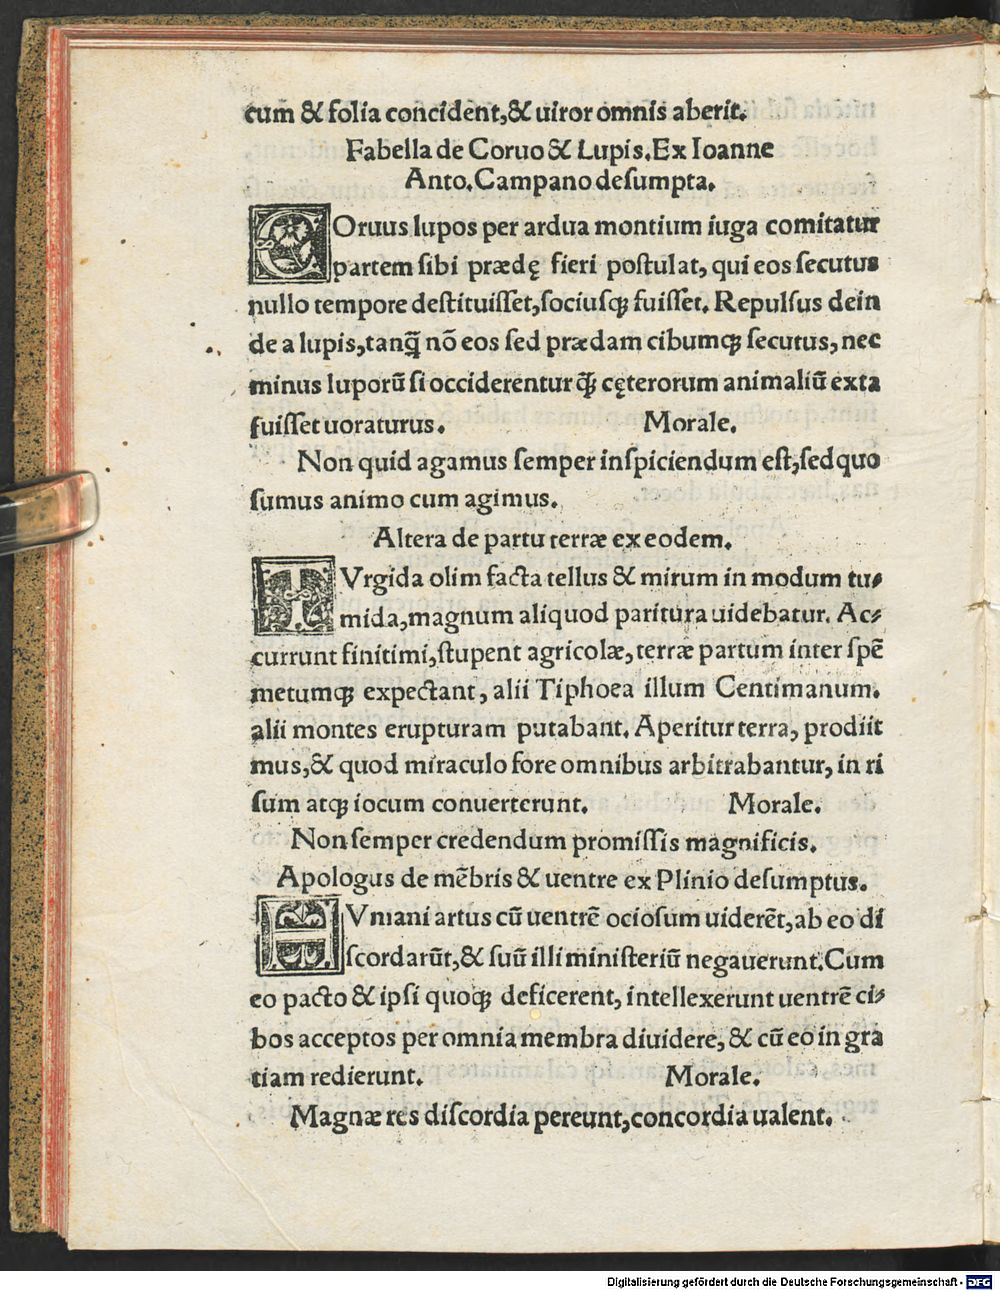 cum & folia concident,& uiror omnis aberit.
Fabella de Coruo & Lupis. Ex Ioanne
Anto. Campano desumpta.
COruus lupos per ardua montium iuga comitatur
partem sibi prædę fieri postulat, qui eos secutus
nullo tempore destituisset, sociusqꝫ fuisset. Repulsus dein
de a lupis, tanq̃ nõ eos sed prædam cibumqꝫ secutus, nec
minus luporũ si occiderentur q̃ cęterorum animaliũ exta
fuisset uoraturus. Morale.
Non quid agamus semper inspiciendum est, sed quo
sumus animo cum agimus.
Altera de partu terræ ex eodem.
TVrgida olim facta tellus & mirum in modum tu-
mida, magnum aliquod paritura uidebatur. Ac-
currunt finitimi, stupent agricolæ, terræ partum inter spẽ
metumqꝫ expectant, alii Tiphoea illum Centimanum.
alii montes erupturam putabant. Aperitur terra, prodiit
mus,& quod miraculo fore omnibus arbitrabantur, in ri
sum atqꝫ iocum conuerterunt. Morale.
Non semper credendum promissis magnificis.
Apologus de mẽbris & uentre ex Plinio desumptus.
HVmani artus cũ uentrẽ ociosum uiderẽt, ab eo di
scordarũt,& suũ illi ministeriũ negauerunt. Cum
eo pacto & ipsi quoqꝫ deficerent, intellexerunt uentrẽ ci-
bos acceptos per omnia membra diuidere, & cũ eo in gra
tiam redierunt. Morale.
Magnæ res discordia pereunt, concordia ualent.
Digitalisierung gefördert durch die Deutsche Forschungsgemeinschaft - DFG